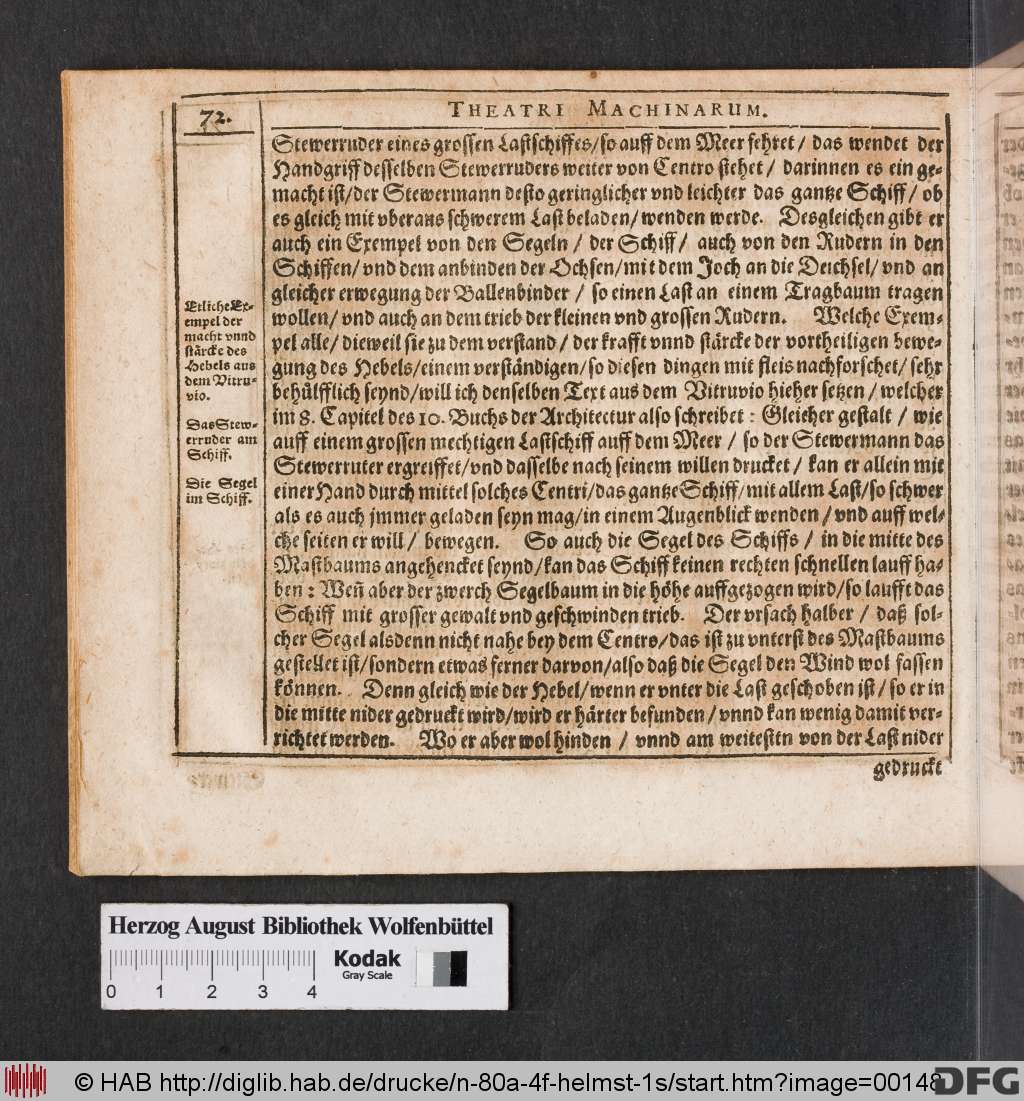 72.
THEATRI MACHINARUM.
Stewerruder eines grossen Lastschiffes/so auff dem Meer fehret/ das wendet der
Handgriff desselben Stewerruders weiter von Centro stehet/ darinnen es ein ge-
macht ist/der Stewermann desto geringlicher vnd leichter das gantze Schiff/ ob
es gleich mit vberaus schwerem Last beladen/wenden werde. Desgleichen gibt er
auch ein Exempel von den Segeln/ der Schiff/ auch von den Rudern in den
Schiffen/vnd dem anbinden der Ochsen/mit dem Joch an die Deichsel/vnd an
gleicher erwegung der Ballenbinder/ so einen Last an einem Tragbaum tragen
wollen/vnd auch an dem trieb der kleinen vnd grossen Rudern. Welche Exem-
pel alle/dieweil sie zu dem verstand/ der krafft vnnd stärcke der vortheiligen bewe-
gung des Hebels/einem verständigen/so diesen dingen mit fleis nachforschet/sehr
behülfflich seynd/will ich denselben Text aus dem Vitruvio hieher setzen/ welcher
im 8. Capitel des 10. Buchs der Architectur also schreibet: Gleicher gestalt/ wie
auff einem grossen mechtigen Lastschiff auff dem Meer/ so der Stewermann das
Stewerruter ergreiffet/vnd dasselbe nach seinem willen drucket/ kan er allein mit
einer Hand durch mittel solches Centri/das gantze Schiff/mit allem Last/so schwer
als es auch jmmer geladen seyn mag/in einem Augenblick wenden/vnd auff wel-
che seiten er will/ bewegen. So auch die Segel des Schiffs/ in die mitte des
Mastbaums angehencket seynd/kan das Schiff keinen rechten schnellen lauff ha-
ben: Wen̄ aber der zwerch Segelbaum in die höhe auffgezogen wird/so laufft das
Schiff mit grosser gewalt vnd geschwinden trieb. Der vrsach halber/ daß sol-
cher Segel alsdenn nicht nahe bey dem Centro/das ist zu vnterst des Mastbaums
gestellet ist/sondern etwas ferner darvon/also daß die Segel den Wind wol fassen
können. Denn gleich wie der Hebel/wenn er vnter die Last geschoben ist/so er in
die mitte nider gedruckt wird/wird er härter befunden/vnnd kan wenig damit ver-
richtet werden. Wo er aber wol hinden/ vnnd am weitesten von der Last nider
gedruckt
Etliche Ex-
empel der
macht vnnd
stärcke des
Hebels aus
dem Vitru-
vio.
Das Stew-
erruder am
Schiff.
Die Segel
im Schiff.
Herzog August Bibliothek Wolfenbüttel
Kodak
Gray Scale
0 1 2 3 4
© HAB http://diglib.hab.de/drucke/n-80a-4f-helmst-1s/start.htm?image=00148
DFG